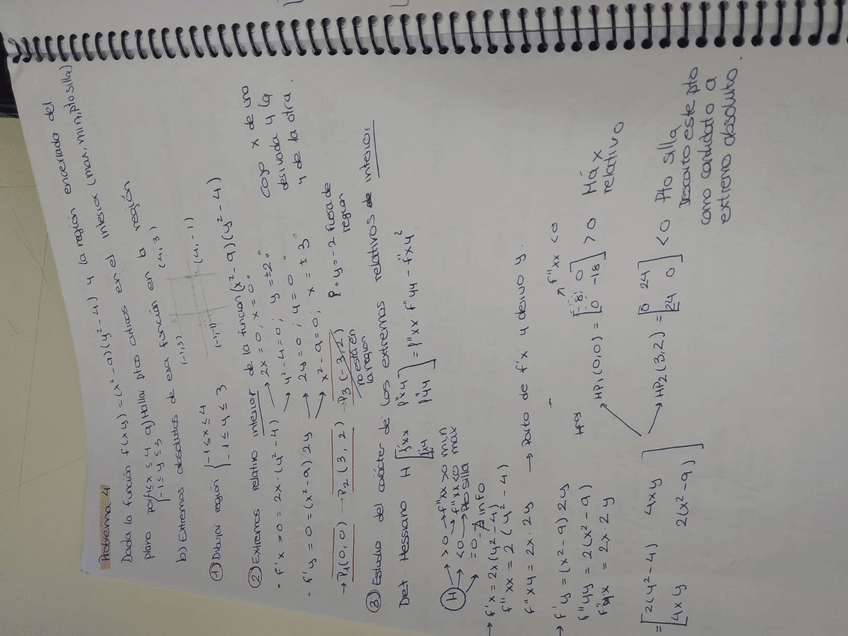 Problema 4
Dada la función f(xy) = (x²-9)(y²-4) y la región encerrada del
plano -1≤x≤4 -1≤y≤3 a) Hallar ptos críticos en el interior (max, min, pto silla)
b) Extremos absolutos de esa función en la región
① Dibujar región { -1≤x≤4 -1≤y≤3
(-1,3) (4,3)
(-1,-1) (4,-1)
② Extremos relativo interior de la función (x²-9)(y²-4)
· f'x = 0 = 2x·(y²-4) → 2x=0; x=0
→ y²-4=0; y=±2
· f'y = 0 = (x²-9)·2y → 2y=0; y=0
→ x²-9=0; x=±3
Cojo x de una
derivada y la
y de la otra.
→ P1(0,0) → P2(3,2) → P3(-3,2)
no está en
la región
P. y=-2 fuera de
región
③ Estudio del carácter de los extremos relativos de interior
Det Hessiano H [f''xx f''xy f''xy f''yy] = f''xx f''yy - f''xy²
H → >0 → f''xx >0 min
→ f''xx <0 max
→ <0 → Pto silla
→ =0 → ∄ info
→ f'x = 2x(y²-4)
f''xx = 2(y²-4)
f''xy = 2x·2y → Parto de f'x y derivo y.
→ f'y = (x²-9)2y
f''yy = 2(x²-9)
f''yx = 2x2y
= [2(y²-4) 4xy
4xy 2(x²-9)]
→ HP1(0,0) = [-8 0 0 -18] >0 Máx
relativo
f''xx <0
→ HP2(3,2) = [0 24 24 0] <0 Pto silla
Descarto este pto
como candidato a
extremo absoluto.